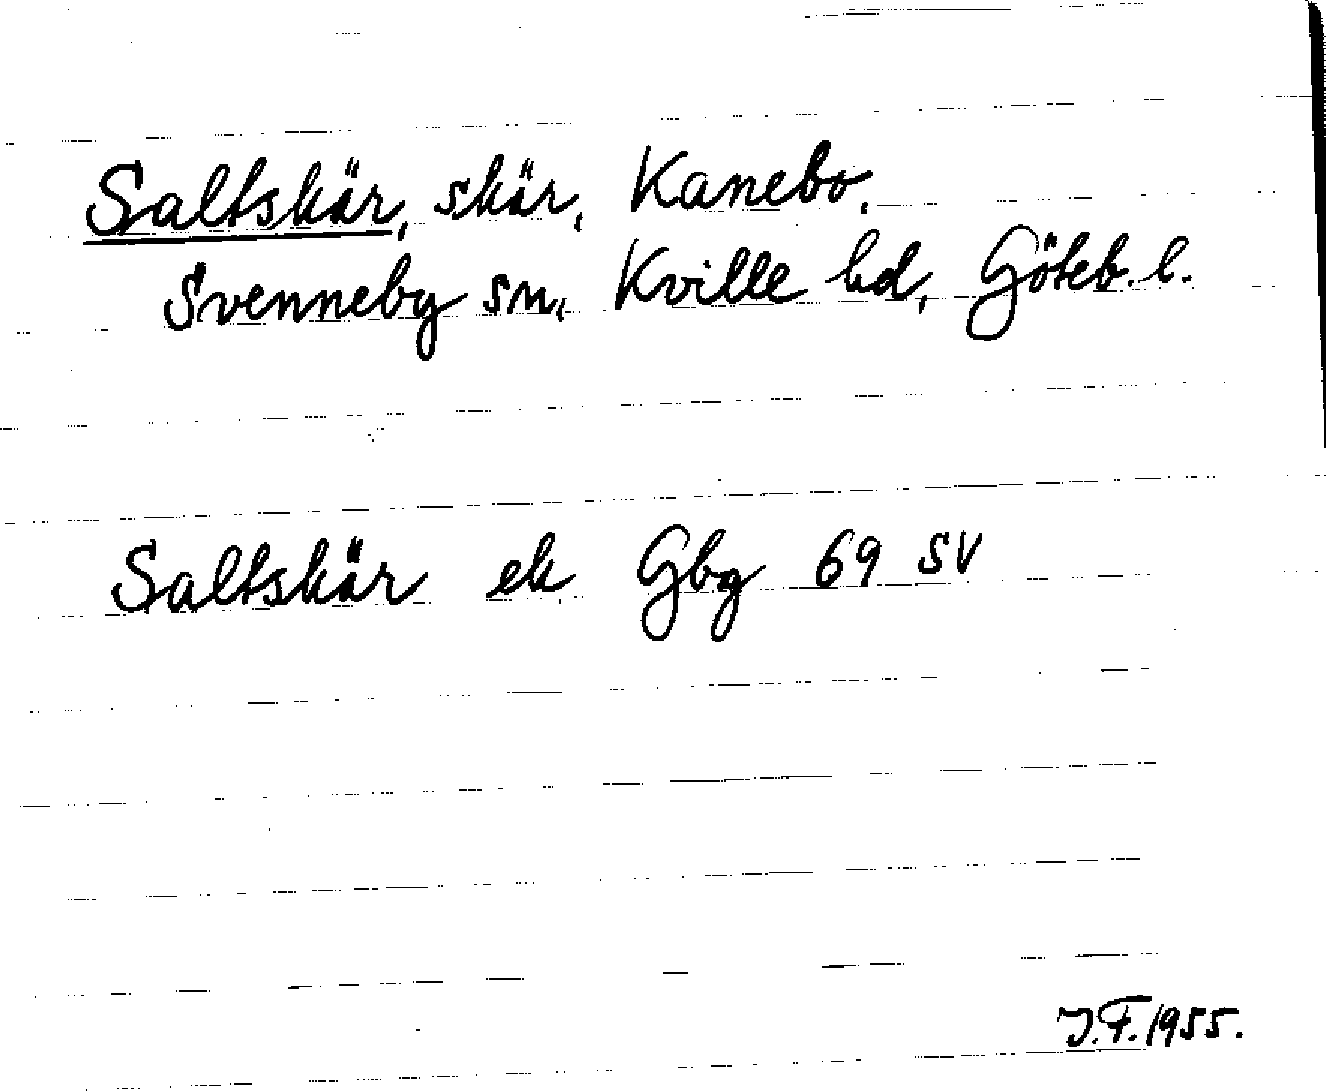 Saltskär, skär, Kanebo,
Svenneby sn, Kville hd, Göteb. l.
Saltskär ek Gbg 69 SV
J.F. 1955.